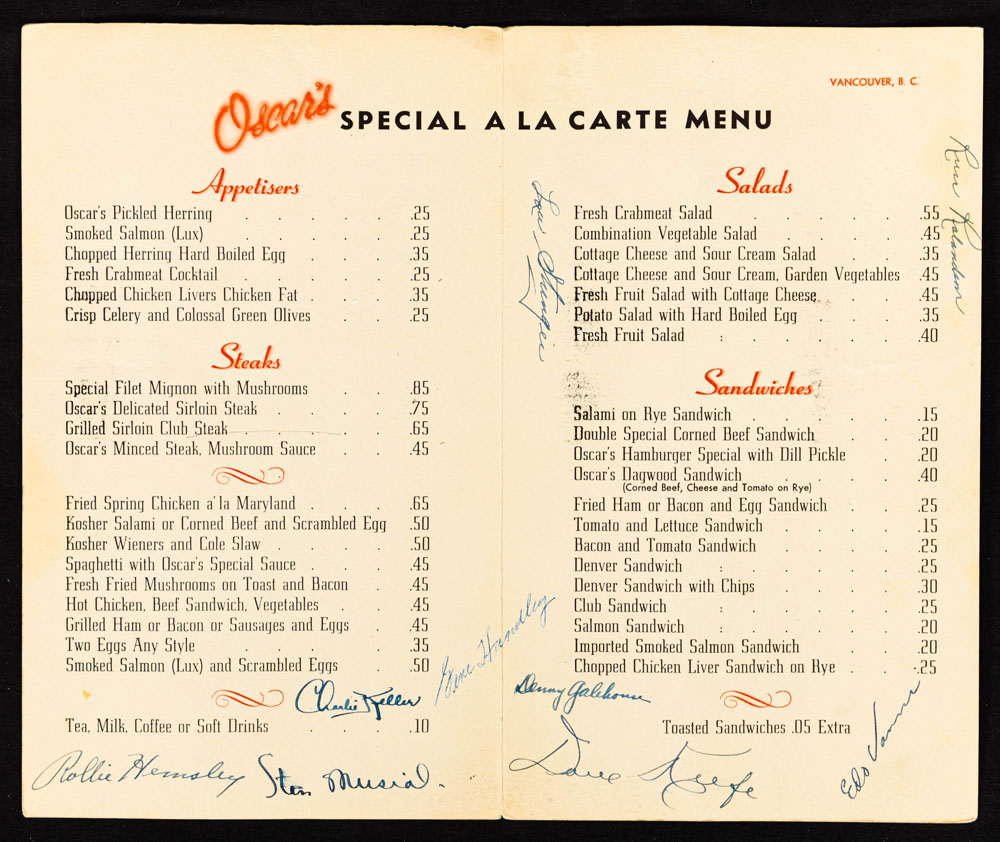 VANCOUVER, B. C.
Oscar's SPECIAL A LA CARTE MENU
Appetisers
Oscar's Pickled Herring . . . . . .25
Smoked Salmon (Lux) . . . . . .25
Chopped Herring Hard Boiled Egg . . . .35
Fresh Crabmeat Cocktail . . . . .25
Chopped Chicken Livers Chicken Fat . . . .35
Crisp Celery and Colossal Green Olives . . .25
Steaks
Special Filet Mignon with Mushrooms . . .85
Oscar's Delicated Sirloin Steak . . . . .75
Grilled Sirloin Club Steak . . . . .65
Oscar's Minced Steak, Mushroom Sauce . . .45
Fried Spring Chicken a' la Maryland . . . .65
Kosher Salami or Corned Beef and Scrambled Egg .50
Kosher Wieners and Cole Slaw . . . . .50
Spaghetti with Oscar's Special Sauce . . . .45
Fresh Fried Mushrooms on Toast and Bacon . .45
Hot Chicken, Beef Sandwich, Vegetables . . .45
Grilled Ham or Bacon or Sausages and Eggs . .45
Two Eggs Any Style . . . . . .35
Smoked Salmon (Lux) and Scrambled Eggs . .50
Charlie Keller
Tea, Milk, Coffee or Soft Drinks . . . .10
Rollie Hemsley
Stan Musial.
Gene Handley
Lou Stringer
Salads
Fresh Crabmeat Salad . . . . . .55
Combination Vegetable Salad . . . . .45
Cottage Cheese and Sour Cream Salad . . .35
Cottage Cheese and Sour Cream, Garden Vegetables .45
Fresh Fruit Salad with Cottage Cheese . . .45
Potato Salad with Hard Boiled Egg . . . .35
Fresh Fruit Salad : . . . . .40
Sandwiches
Salami on Rye Sandwich . . . . . .15
Double Special Corned Beef Sandwich . . .20
Oscar's Hamburger Special with Dill Pickle . .20
Oscar's Dagwood Sandwich . . . . .40
(Corned Beef, Cheese and Tomato on Rye)
Fried Ham or Bacon and Egg Sandwich . . .25
Tomato and Lettuce Sandwich . . . . .15
Bacon and Tomato Sandwich . . . . .25
Denver Sandwich : . . . . .25
Denver Sandwich with Chips . . . . .30
Club Sandwich : . . . . .25
Salmon Sandwich : . . . . .20
Imported Smoked Salmon Sandwich . . . .20
Chopped Chicken Liver Sandwich on Rye . . .25
Denny Galehouse
Toasted Sandwiches .05 Extra
Dave Keefe